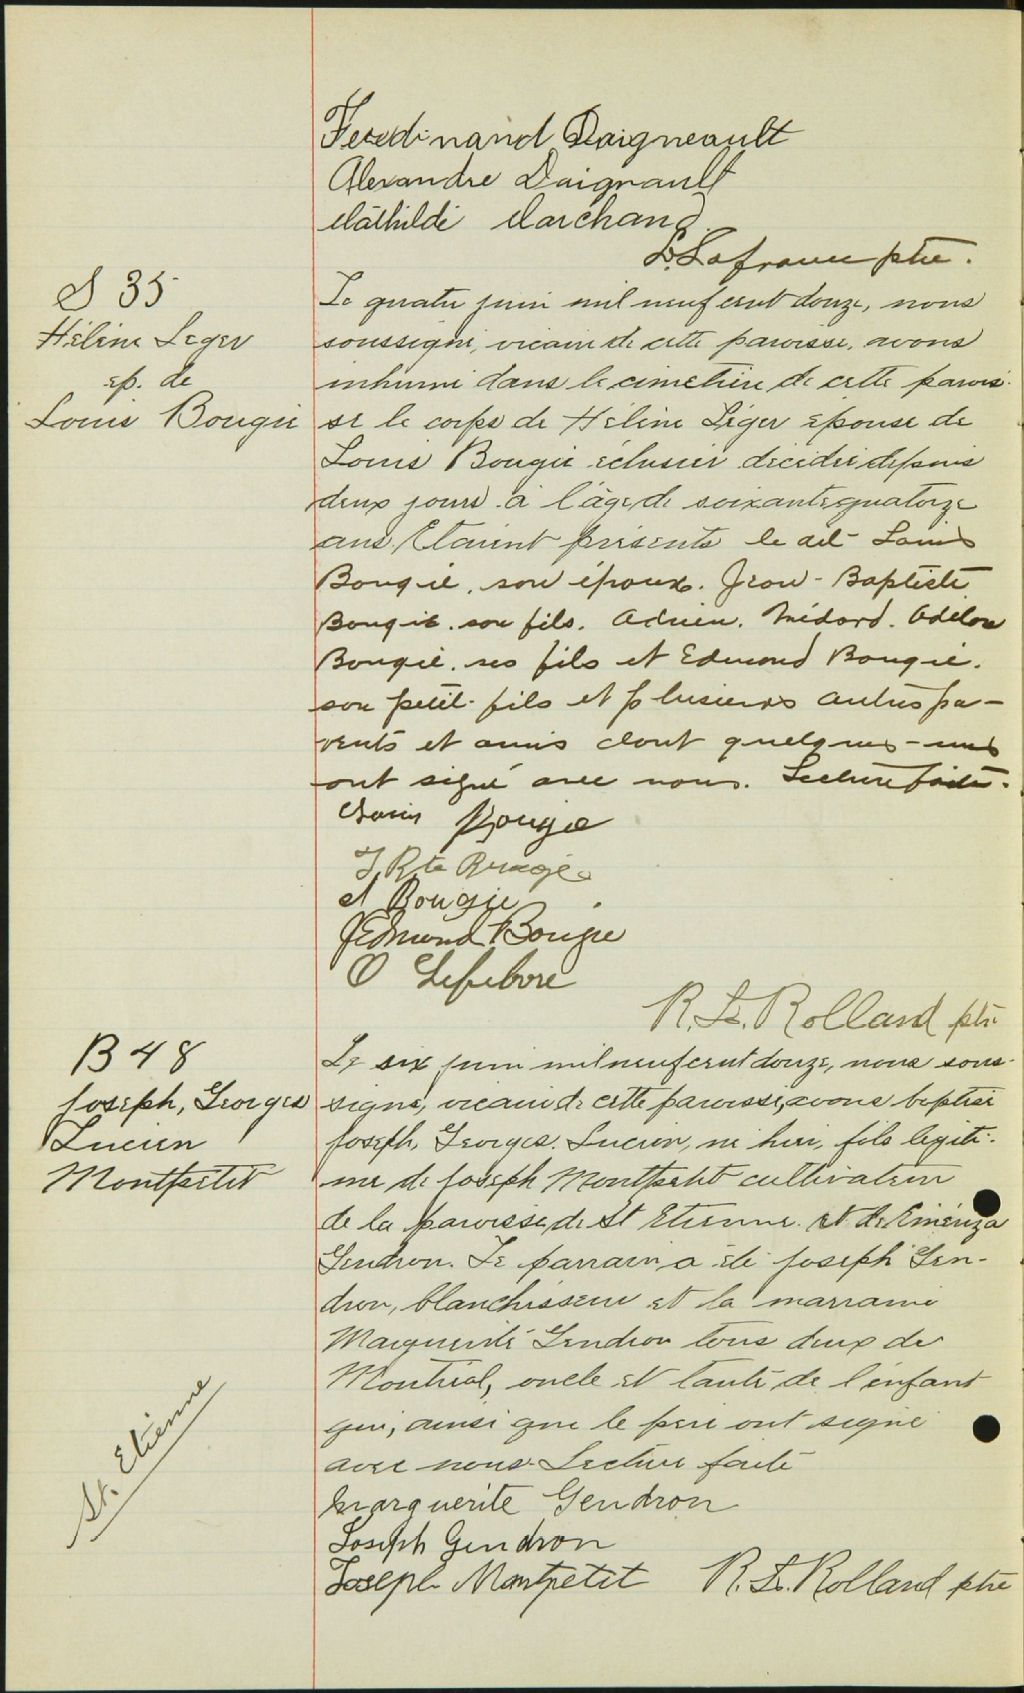 Ferdinand Daigneault
Alexandre Daignault
Mathilde Marchand
L. Lafrance ptre.
S 35
Hélène Leger
ep. de
Louis Bougie
Le quatre juin mil neuf cent douze, nous
soussigné, vicaire de cette paroisse, avons
inhumé dans le cimetière de cette parois-
se le corps de Hélène Léger épouse de
Louis Bougie éclusier décédée depuis
deux jours à l'âge de soixante-quatorze
ans. Etaient présents le dit Louis
Bougie, son époux. Jean-Baptiste
Bougie, son fils, Adrien, Médard, Odilon
Bougie, ses fils et Edmond Bougie,
son petit-fils et plusieurs autres pa-
rents et amis dont quelques-uns
ont signé avec nous. Lecture faite.
Louis Bougie
J Bte Bougie
A Bougie
J Edmond Bougie
O Lefebvre
R. Ls. Rolland ptre
B 48
Joseph, Georges
Lucien
Montpetit
St. Etienne
Le six juin mil neuf cent douze, nous sous-
signé, vicaire de cette paroisse, avons baptisé
Joseph, Georges, Lucien, né hier, fils légiti-
me de Joseph Montpetit cultivateur
de la paroisse de St Etienne et de Eménza
Gendron. Le parrain a été Joseph Gen-
dron, blanchisseur et la marraine
Marguerite Gendron tous deux de
Montréal, oncle et tante de l'enfant
qui, ainsi que le père ont signé
avec nous. Lecture faite
Marguerite Gendron
Joseph Gendron
Joseph Montpetit R. Ls. Rolland ptre